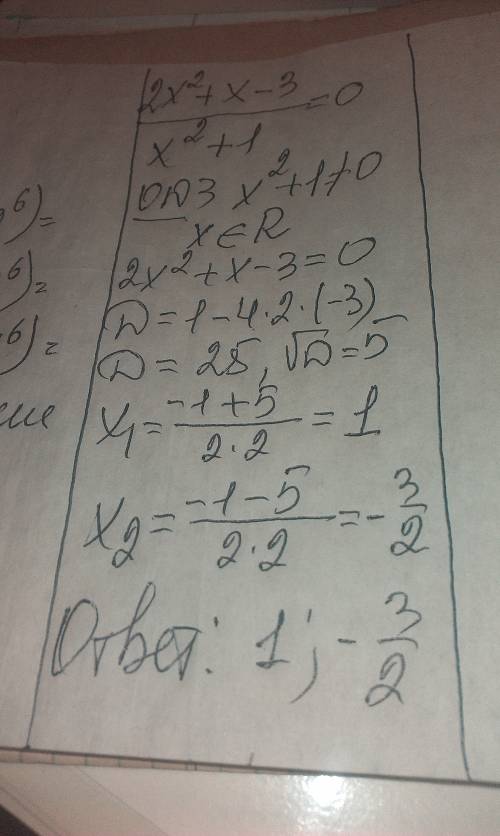 2x²+x-3
―――― =0
x²+1
ОДЗ x²+1≠0
x∈R
2x²+x-3=0
D=1-4·2·(-3)
D=25, √D=5
x₁= (-1+5)/(2·2) =1
x₂= (-1-5)/(2·2) =-3/2
Ответ: 1; -3/2
⁶)=
⁶)=
⁶)=